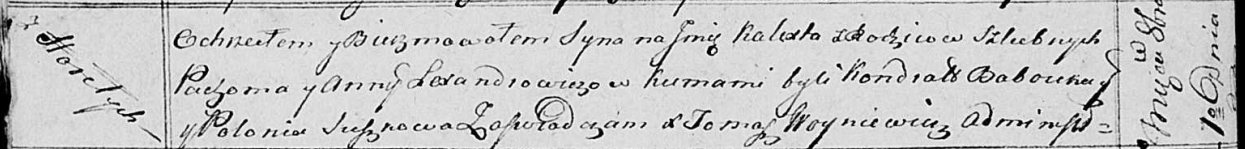 z Wosetych
Ochrzciłem y Bierzmowałem Syna na Jmię Kalixta z Rodzicow Szlubnych
Pachoma y Anny Lexandrowiczow kumami byli Kondratt Babowka y
y Polonia Suszkowa Zaswiadczam X Tomasz Woyniewicz Administ=
w
1ae dnia